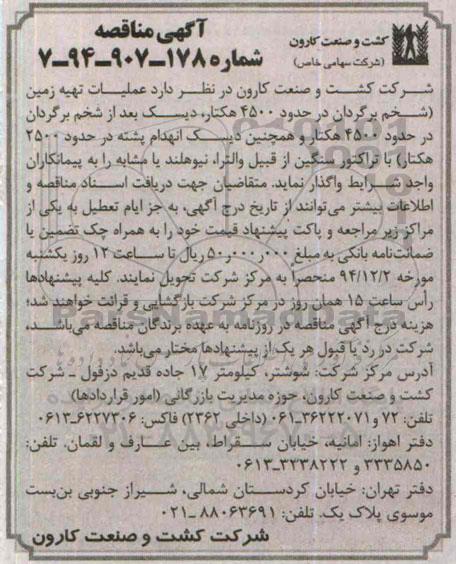 کشت و صنعت کارون
(شرکت سهامی خاص)
آگهی مناقصه
شماره ۱۷۸-۹۰۷-۹۴-۷
شرکت کشت و صنعت کارون در نظر دارد عملیات تهیه زمین
(شخم برگردان در حدود ۴۵۰۰ هکتار، دیسک بعد از شخم برگردان
در حدود ۴۵۰۰ هکتار و همچنین دیسک انهدام پشته در حدود ۲۵۰۰
هکتار) با تراکتور سنگین از قبیل والترا، نیوهلند یا مشابه را به پیمانکاران
واجد شرایط واگذار نماید. متقاضیان جهت دریافت اسناد مناقصه و
اطلاعات بیشتر می‌توانند از تاریخ درج آگهی، به جز ایام تعطیل به یکی از
مراکز زیر مراجعه و پاکت پیشنهاد قیمت خود را به همراه چک تضمین یا
ضمانت‌نامه بانکی به مبلغ ۵۰٫۰۰۰٫۰۰۰ ریال تا ساعت ۱۲ روز یکشنبه
مورخه ۹۴/۱۲/۲ منحصراً به مرکز شرکت تحویل نمایند. کلیه پیشنهادها
رأس ساعت ۱۵ همان روز در مرکز شرکت بازگشایی و قرائت خواهند شد؛
هزینه درج آگهی مناقصه در روزنامه به عهده برندگان مناقصه می‌باشد،
شرکت در رد یا قبول هر یک از پیشنهادها مختار می‌باشد.
آدرس مرکز شرکت: شوشتر، کیلومتر ۱۷ جاده قدیم دزفول ـ شرکت
کشت و صنعت کارون، حوزه مدیریت بازرگانی (امور قراردادها)
تلفن: ۷۲ و ۳۶۲۲۲۰۷۱-۰۶۱ (داخلی ۲۳۶۲) فاکس: ۶۲۲۷۳۰۶-۰۶۱۳
دفتر اهواز: امانیه، خیابان سقراط، بین عارف و لقمان. تلفن:
۳۳۳۵۸۵۰ و ۳۳۳۸۲۲۲-۰۶۱۳
دفتر تهران: خیابان کردستان شمالی، شیراز جنوبی بن‌بست
موسوی پلاک یک. تلفن: ۸۸۰۶۳۶۹۱-۰۲۱
شرکت کشت و صنعت کارون
ParsNamadData